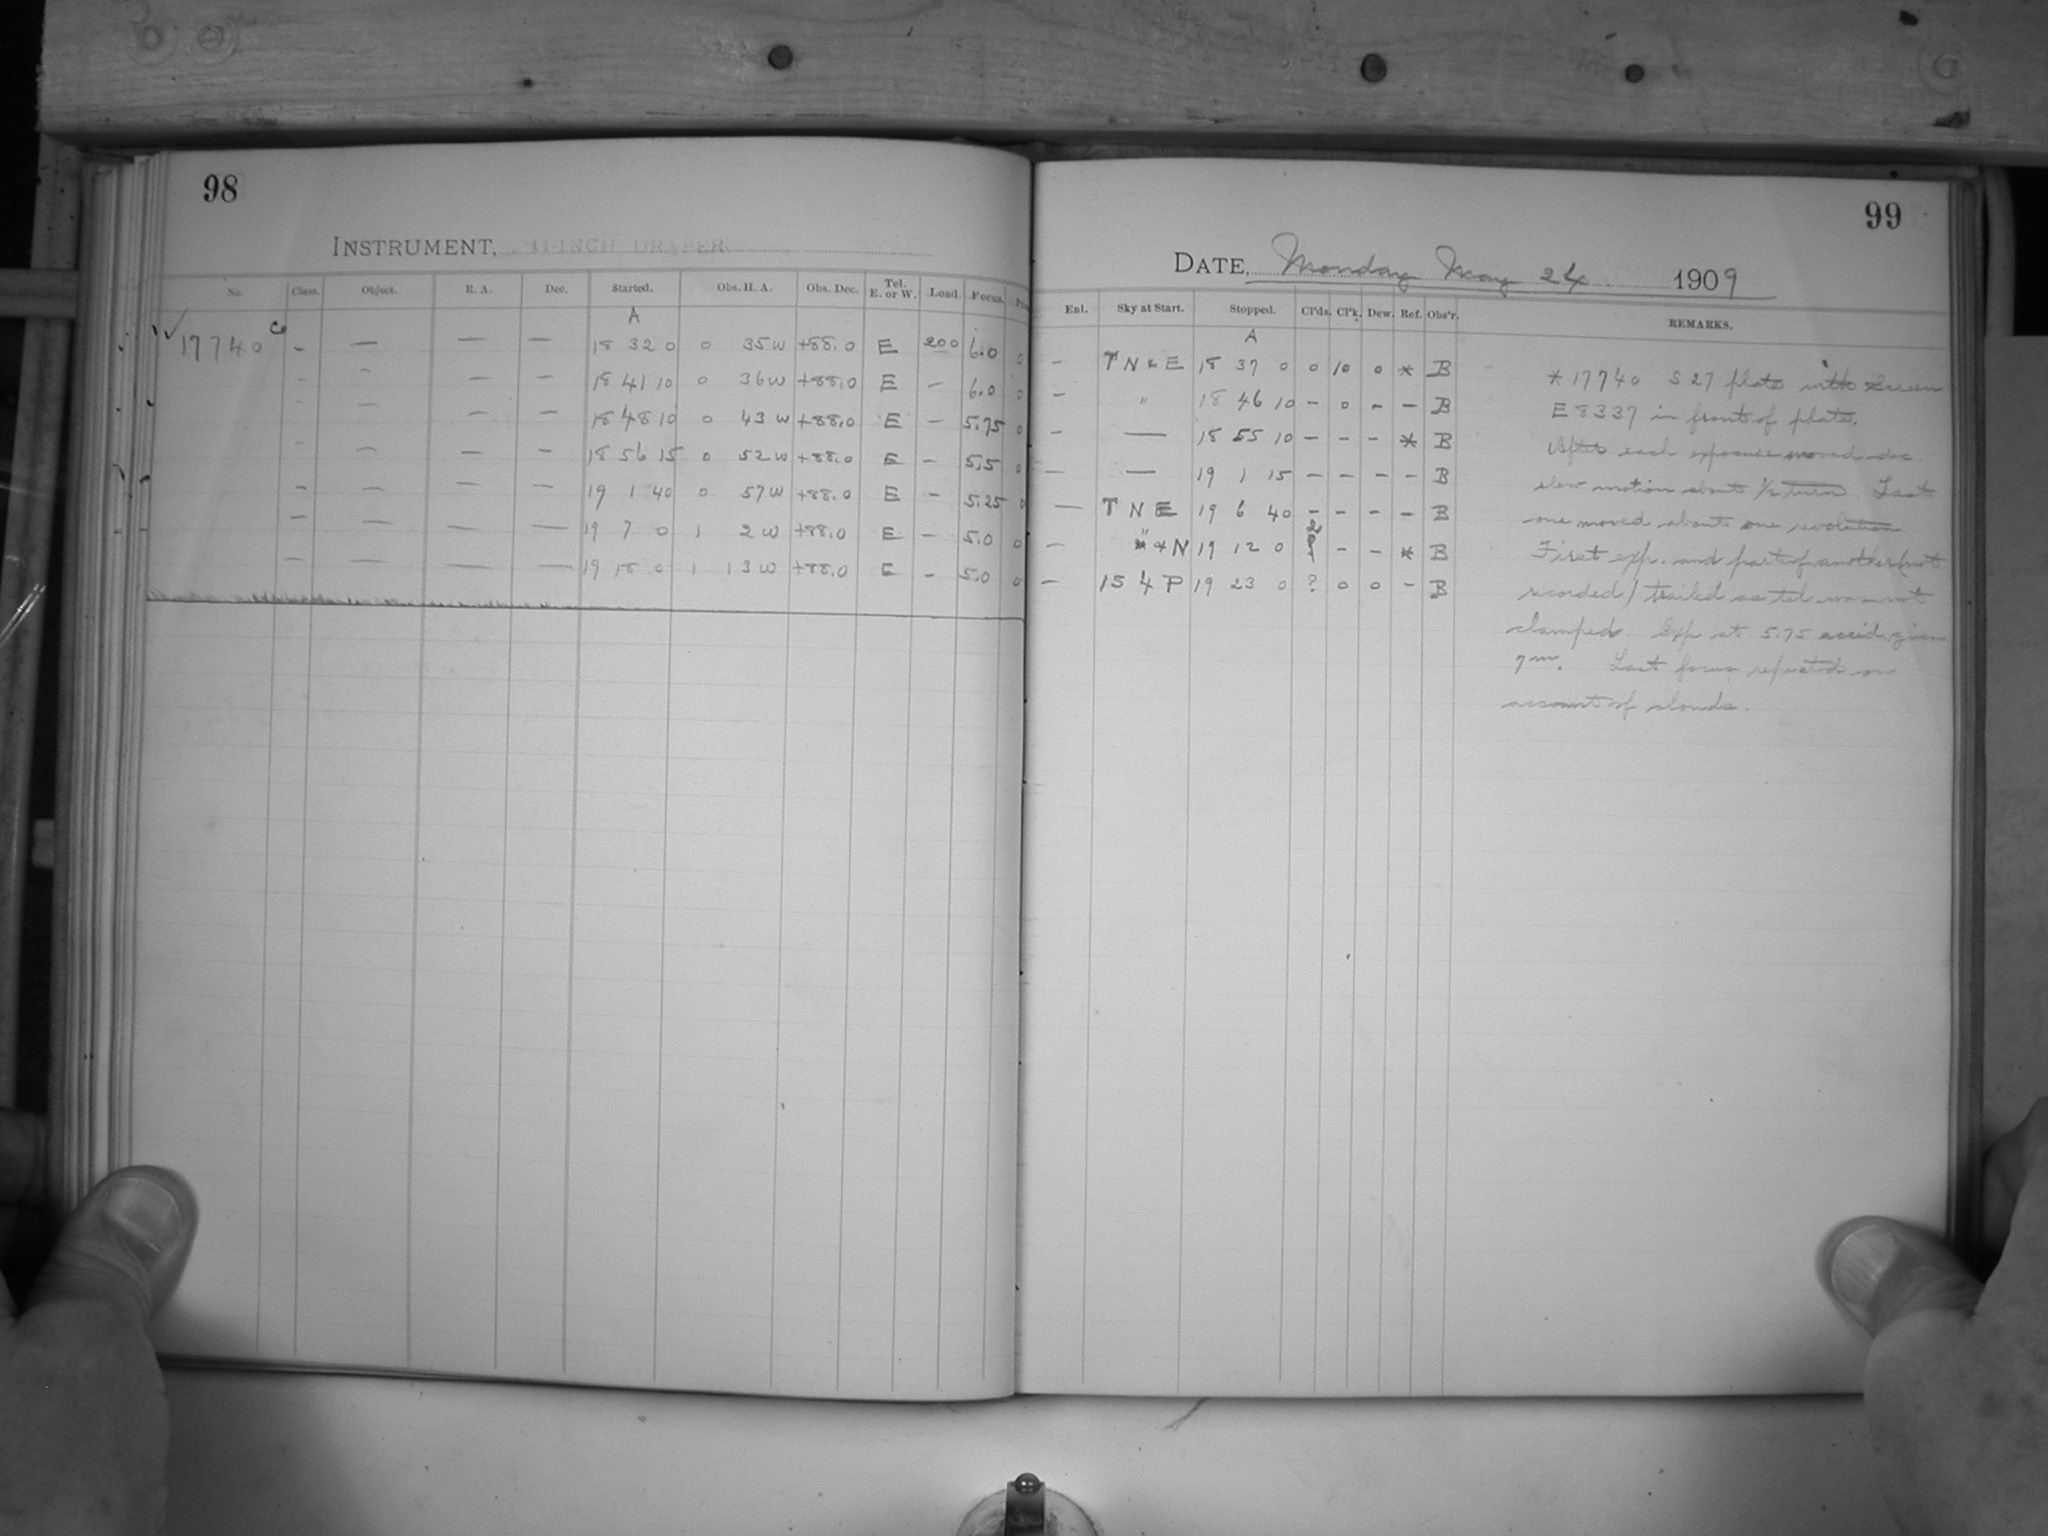 98
INSTRUMENT, 11-INCH DRAPER
No. Class. Object. R. A. Dec. Started. Obs. H. A. Obs. Dec. Tel. E. or W. Load. Focus.
A
✓ 17740 — — — — 18 32 0 0 35 W +88.0 E 200 6.0 0
- - — — 18 41 10 0 36 W +88.0 E — 6.0 0
- — — — 18 48 10 0 43 W +88.0 E — 5.75 0
- — — — 18 56 15 0 52 W +88.0 E — 5.5 0
— — — — 19 1 40 0 57 W +88.0 E — 5.25 0
— — — — 19 7 0 1 2 W +88.0 E — 5.0 0
— — — — 19 18 0 1 13 W +88.0 E — 5.0 0
99
DATE, Monday May 24 1909
Enl. Sky at Start. Stopped. Cl'ds. Cl'k. Dew. Ref. Obs'r. REMARKS.
A
— T N & E 18 37 0 0 10 0 * B
— " 18 46 10 — 0 — — B
— — 18 55 10 — — — * B
— — 19 1 15 — — — — B
— T N E 19 6 40 — — — — B
— " & N 19 12 0 — — * B
— 15 4 P 19 23 0 ? 0 0 — B
* 17740 S 27 plate with Screen
E 8337 in front of plate.
After each exposure moved dec.
slow motion about 1/2 turn. Last
one moved about one revolution
First exp. and part of another (not
recorded) trailed as tel. was not
clamped. Exp at 5.75 accid. given
7m. Last focus repeated on
account of clouds.